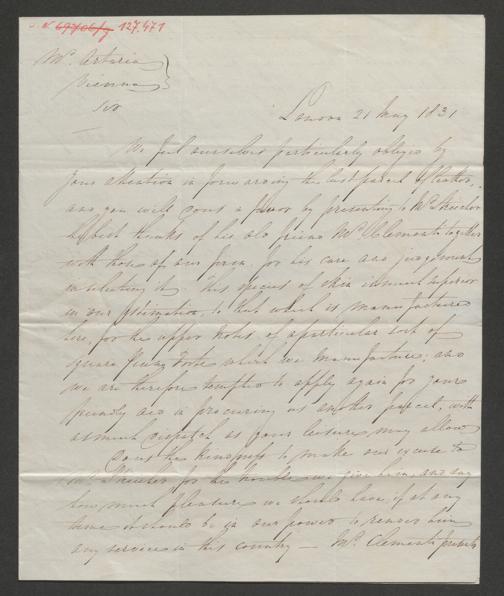 127.471
Mr. Artaria
Vienna
Sir
London 21 May 1831
We feel ourselves particularly obliged by
your attention in forwarding the last parcel of leather,
and you will confer a favor by presenting to Mr. Streicher
the best thanks of his old friend Mr. Clementi together
with those of our firm, for his care and judgement
in selecting it. This species of skin is much superior
in our estimation, to that which is manufactured
here, for the upper notes of a particular sort of
square Piano Forte which we manufacture; and
we are therefore tempted to apply again for your
friendly aid in procuring us another parcel, with
as much dispatch as your leisure may allow
the kindness to make our excuse to
Mr. Streicher for the trouble we give him, and say
how much pleasure we should have, if at any
time it should be in our power to render him
any services in this country — Mr. Clementi presents